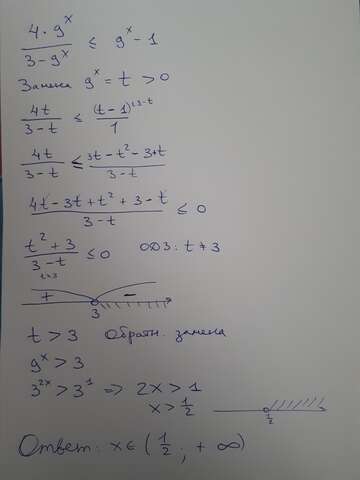 4 · 9^x / (3 - 9^x) ≤ 9^x - 1
Замена 9^x = t > 0
4t / (3 - t) ≤ (t - 1)^{\3 - t} / 1
4t / (3 - t) ≤ (3t - t² - 3 + t) / (3 - t)
(4t - 3t + t² + 3 - t) / (3 - t) ≤ 0
(t² + 3) / (3 - t) ≤ 0 ОДЗ: t ≠ 3
t≠3
+ -
3
t > 3 Обратн. замена
9^x > 3
3^{2x} > 3^1 => 2x > 1
x > 1/2
1/2
Ответ: x ∈ (1/2 ; + ∞)